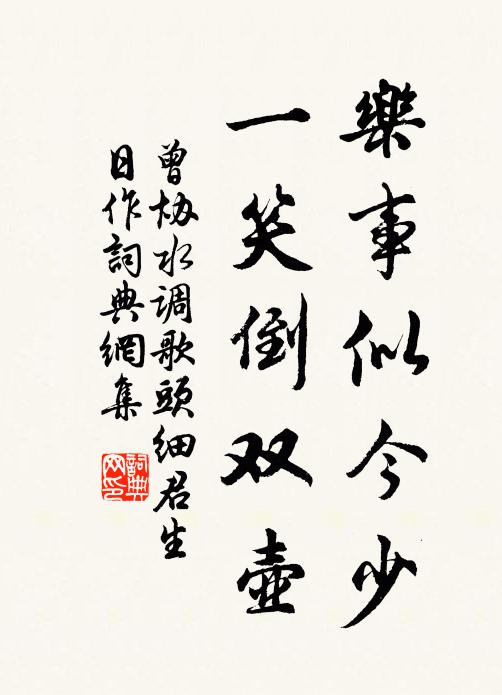 樂事似今少
一笑倒双壺
曾协水调歌頭细君生
日作詞典網集
詞典網印